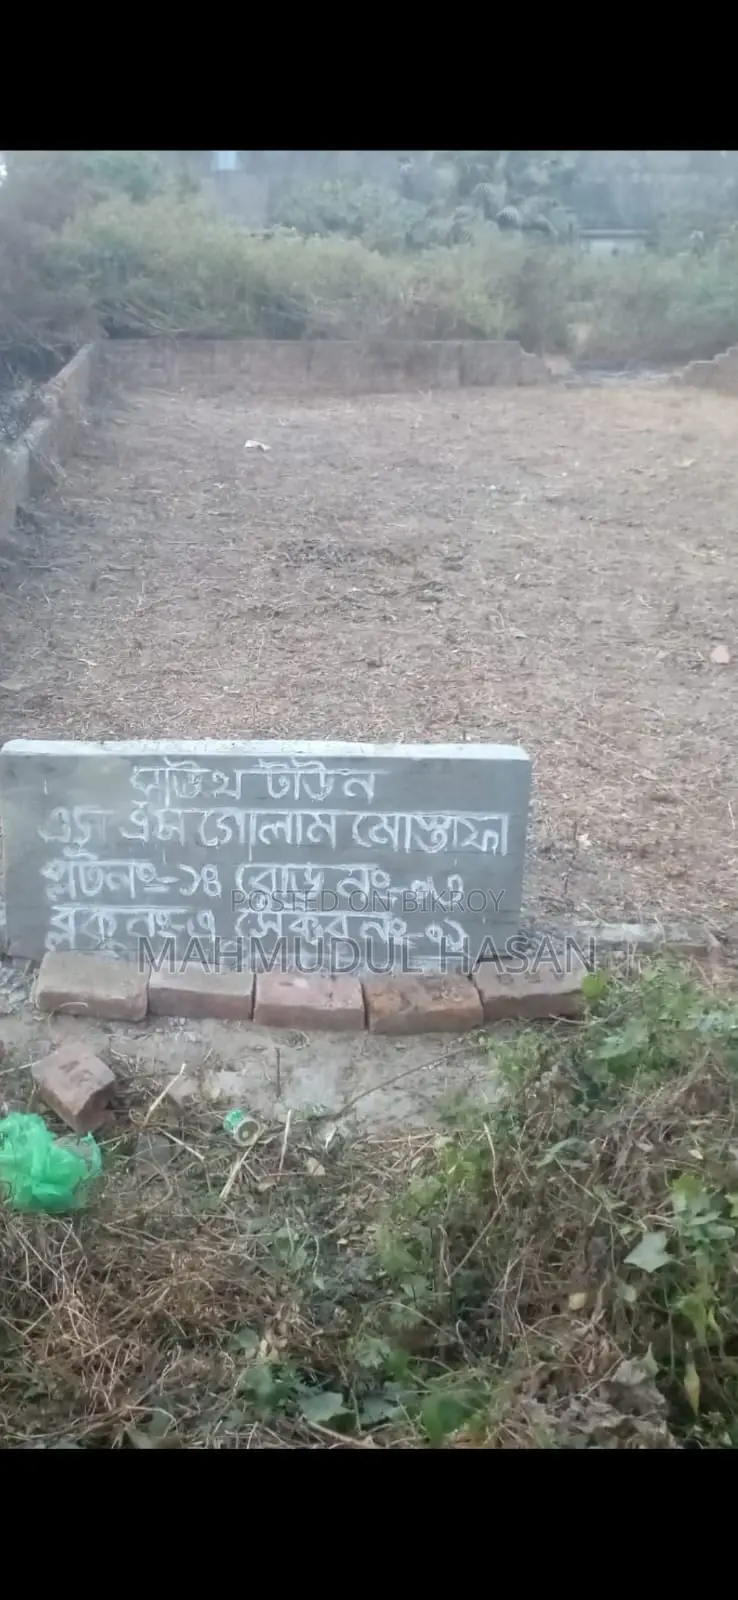 সাউথ টাউন
এস এম গোলাম মোস্তাফা
প্লটনং-১৪ রোড নং-
ব্লকনং-এ সেক্টরনং-০১
POSTED ON BIKROY
MAHMUDUL HASAN